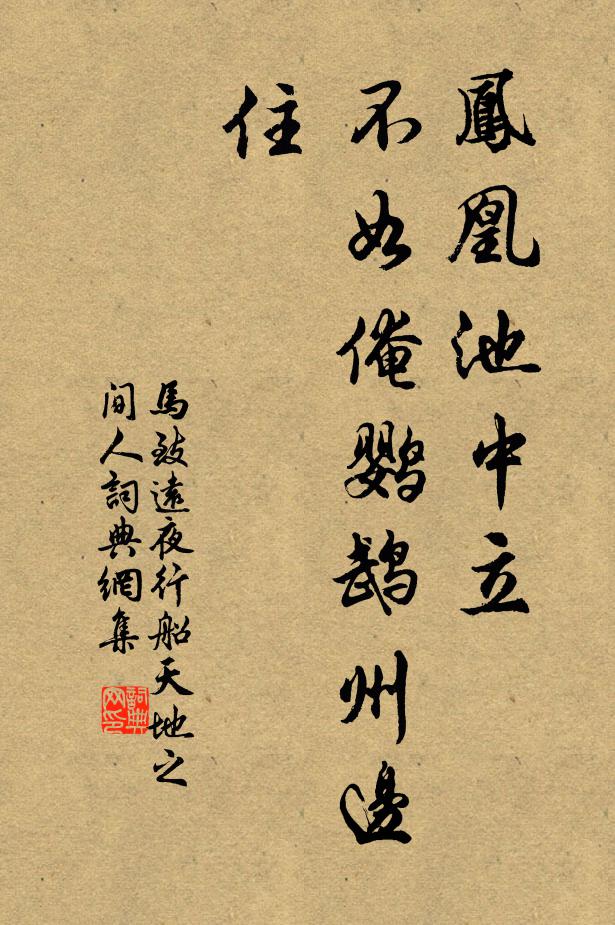 鳳凰池中立
不如俺鹦鵡州邊
住
馬致遠夜行船天地之
间人詞典網集
詞典网印